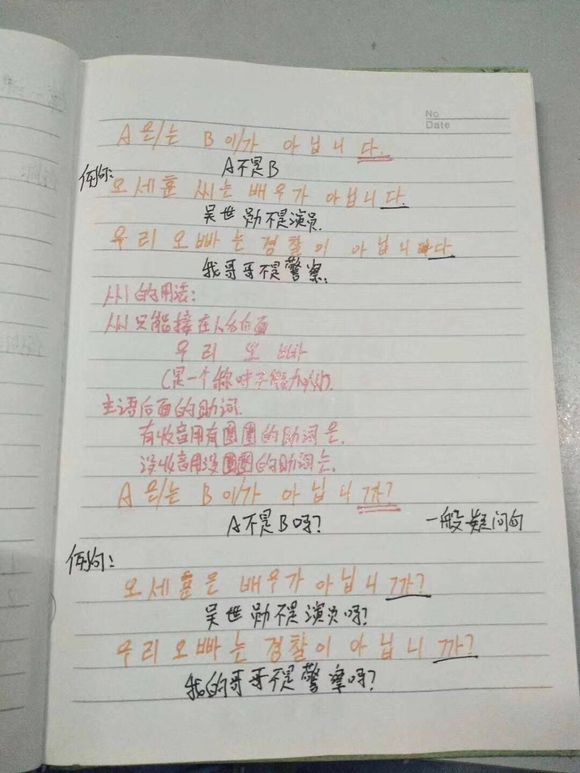 No
Date
A 은/는 B 이/가 아닙니다.
A不是B
例句:
오세훈 씨는 배우가 아닙니다.
吴世勋不是演员.
우리 오빠는 경찰이 아닙니다
我哥哥不是警察.
씨的用法:
씨只能接在人名后面
우리 오빠
(是一个称呼不能加씨).
主语后面的助词.
有收音用有圈圈的助词은.
没收音用没圈圈的助词는.
A 은/는 B 이/가 아닙니까?
A不是B吗? 一般疑问句
例句:
오세훈은 배우가 아닙니까?
吴世勋不是演员吗?
우리 오빠는 경찰이 아닙니까?
我的哥哥不是警察吗?